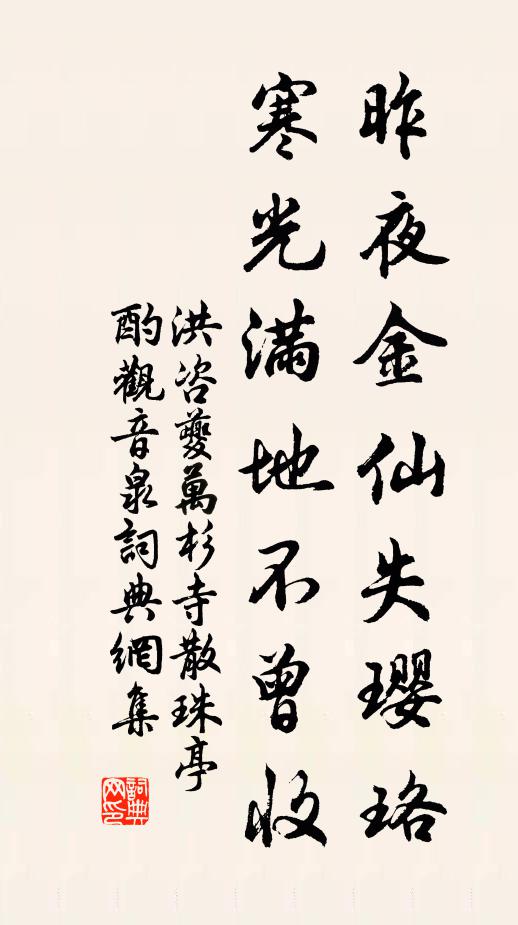 昨夜金仙失璎珞
寒光满地不曾收
洪咨夔萬杉寺散珠亭
酌觀音泉詞典網集
詞典
网印